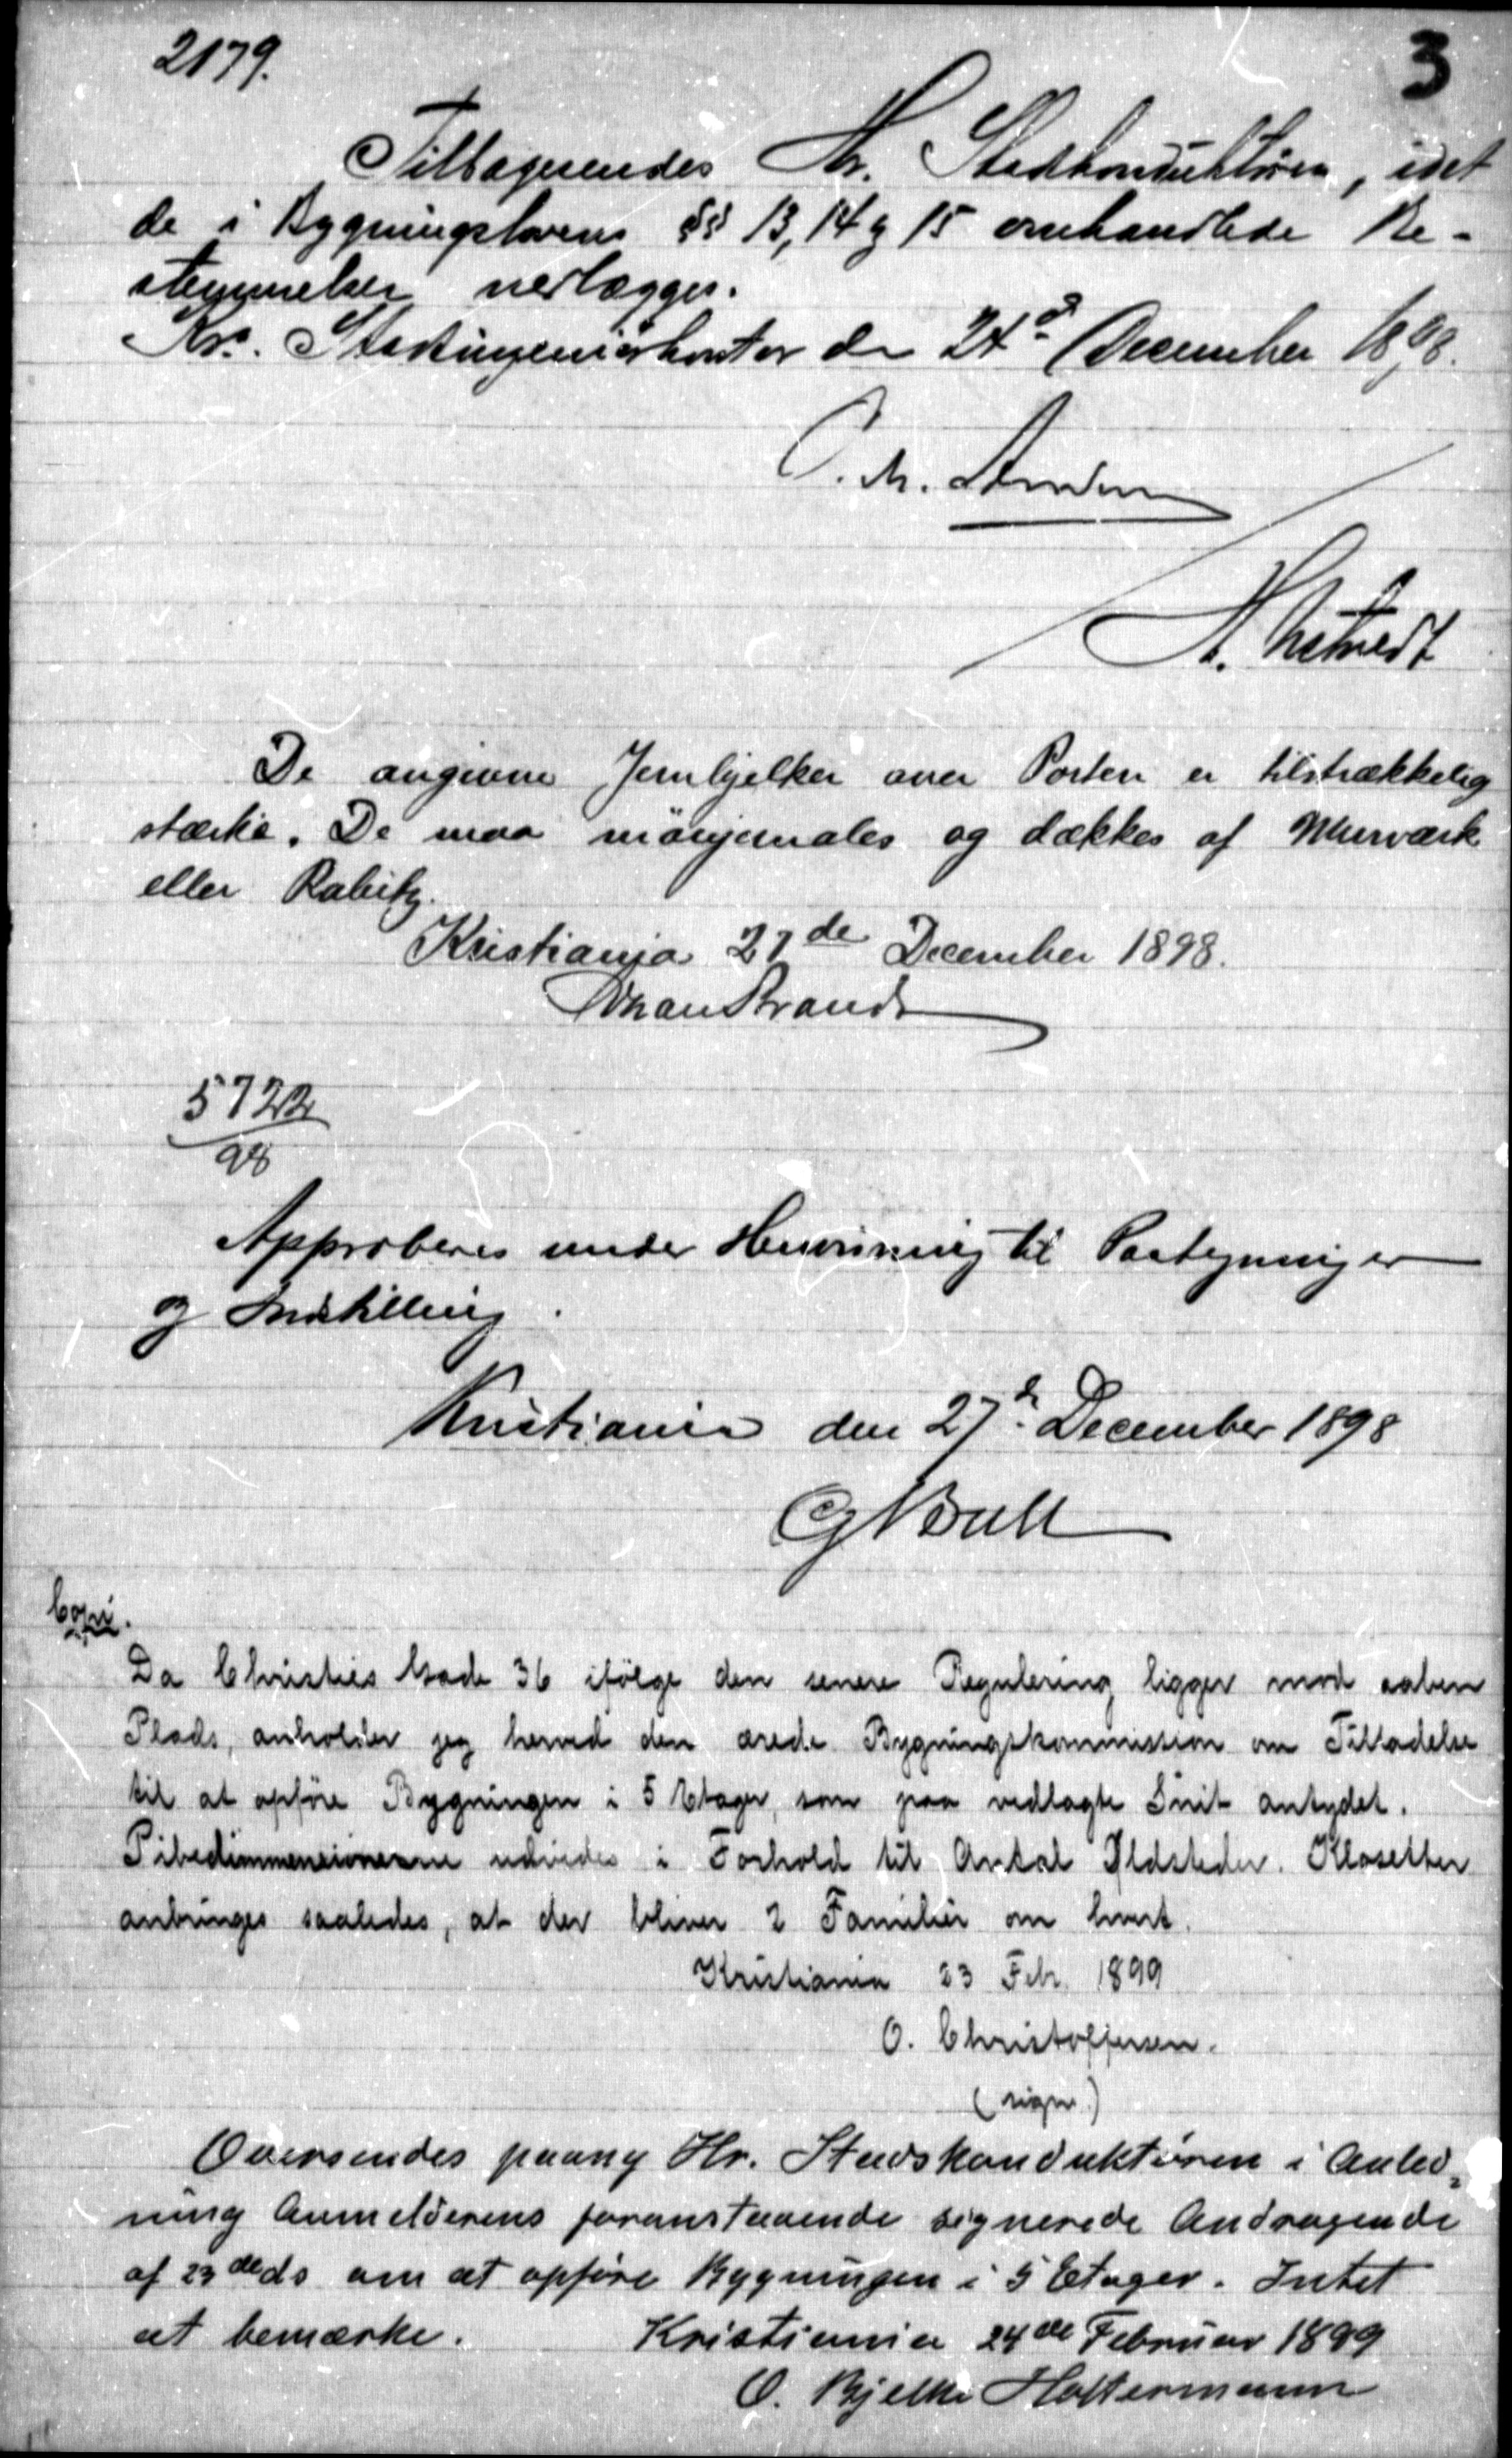 2179.
3
Tilbagesendes Hr. Stadskonduktøren, idet
de i Bygningslovens §§ 13, 14 & 15 omhandlede Be-
stemmelser vedlægges.
Kra. Stadsingeniørkontor den 24de December 1898.
De angivne Jernbjelker over Porten er tilstrækkelig
stærke. De maa mönjemales og dækkes af Murværk
eller Rabitz.
Kristiania 27de December 1898.
5722
98
Approberes under Henvisning til Paategninger
og Indstilling.
Kristiania den 27de December 1898
Bull
Copi.
Da Christies Gade 36 ifölge den senere Regulering ligger mod aaben
Plads, anholder jeg herved den ærede Bygningskommission om Tilladelse
til at opföre Bygningen i 5 Etager, som paa vedlagte Snit antydet.
Pibedimmensionerne udvides i Forhold til Antal Ildsteder. Klosetter
anbringes saaledes, at der bliver 2 Familier om hvert.
Kristiania 23 Febr. 1899
O. Christoffersen.
(sign.)
Oversendes paany Hr. Stadskonduktøren i Anled-
ning Anmelderens foranstaaende signerede Andragende
af 23de ds om at opføre Bygningen i 5 Etager. Intet
at bemærke. Kristiania 24de Februar 1899
O. Bjelke Holtermann